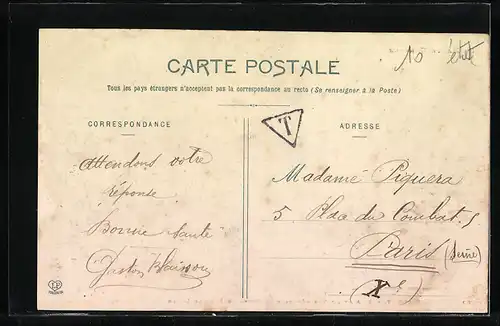 10
CARTE POSTALE
Tous les pays étrangers n'acceptent pas la correspondance au recto (Se renseigner à la Poste)
CORRESPONDANCE
attendons votre
réponse
Bonne santé
Gaston
T
ADRESSE
Madame Piquera
5 Place du Combat 5
Paris (Seine)
(Xe)